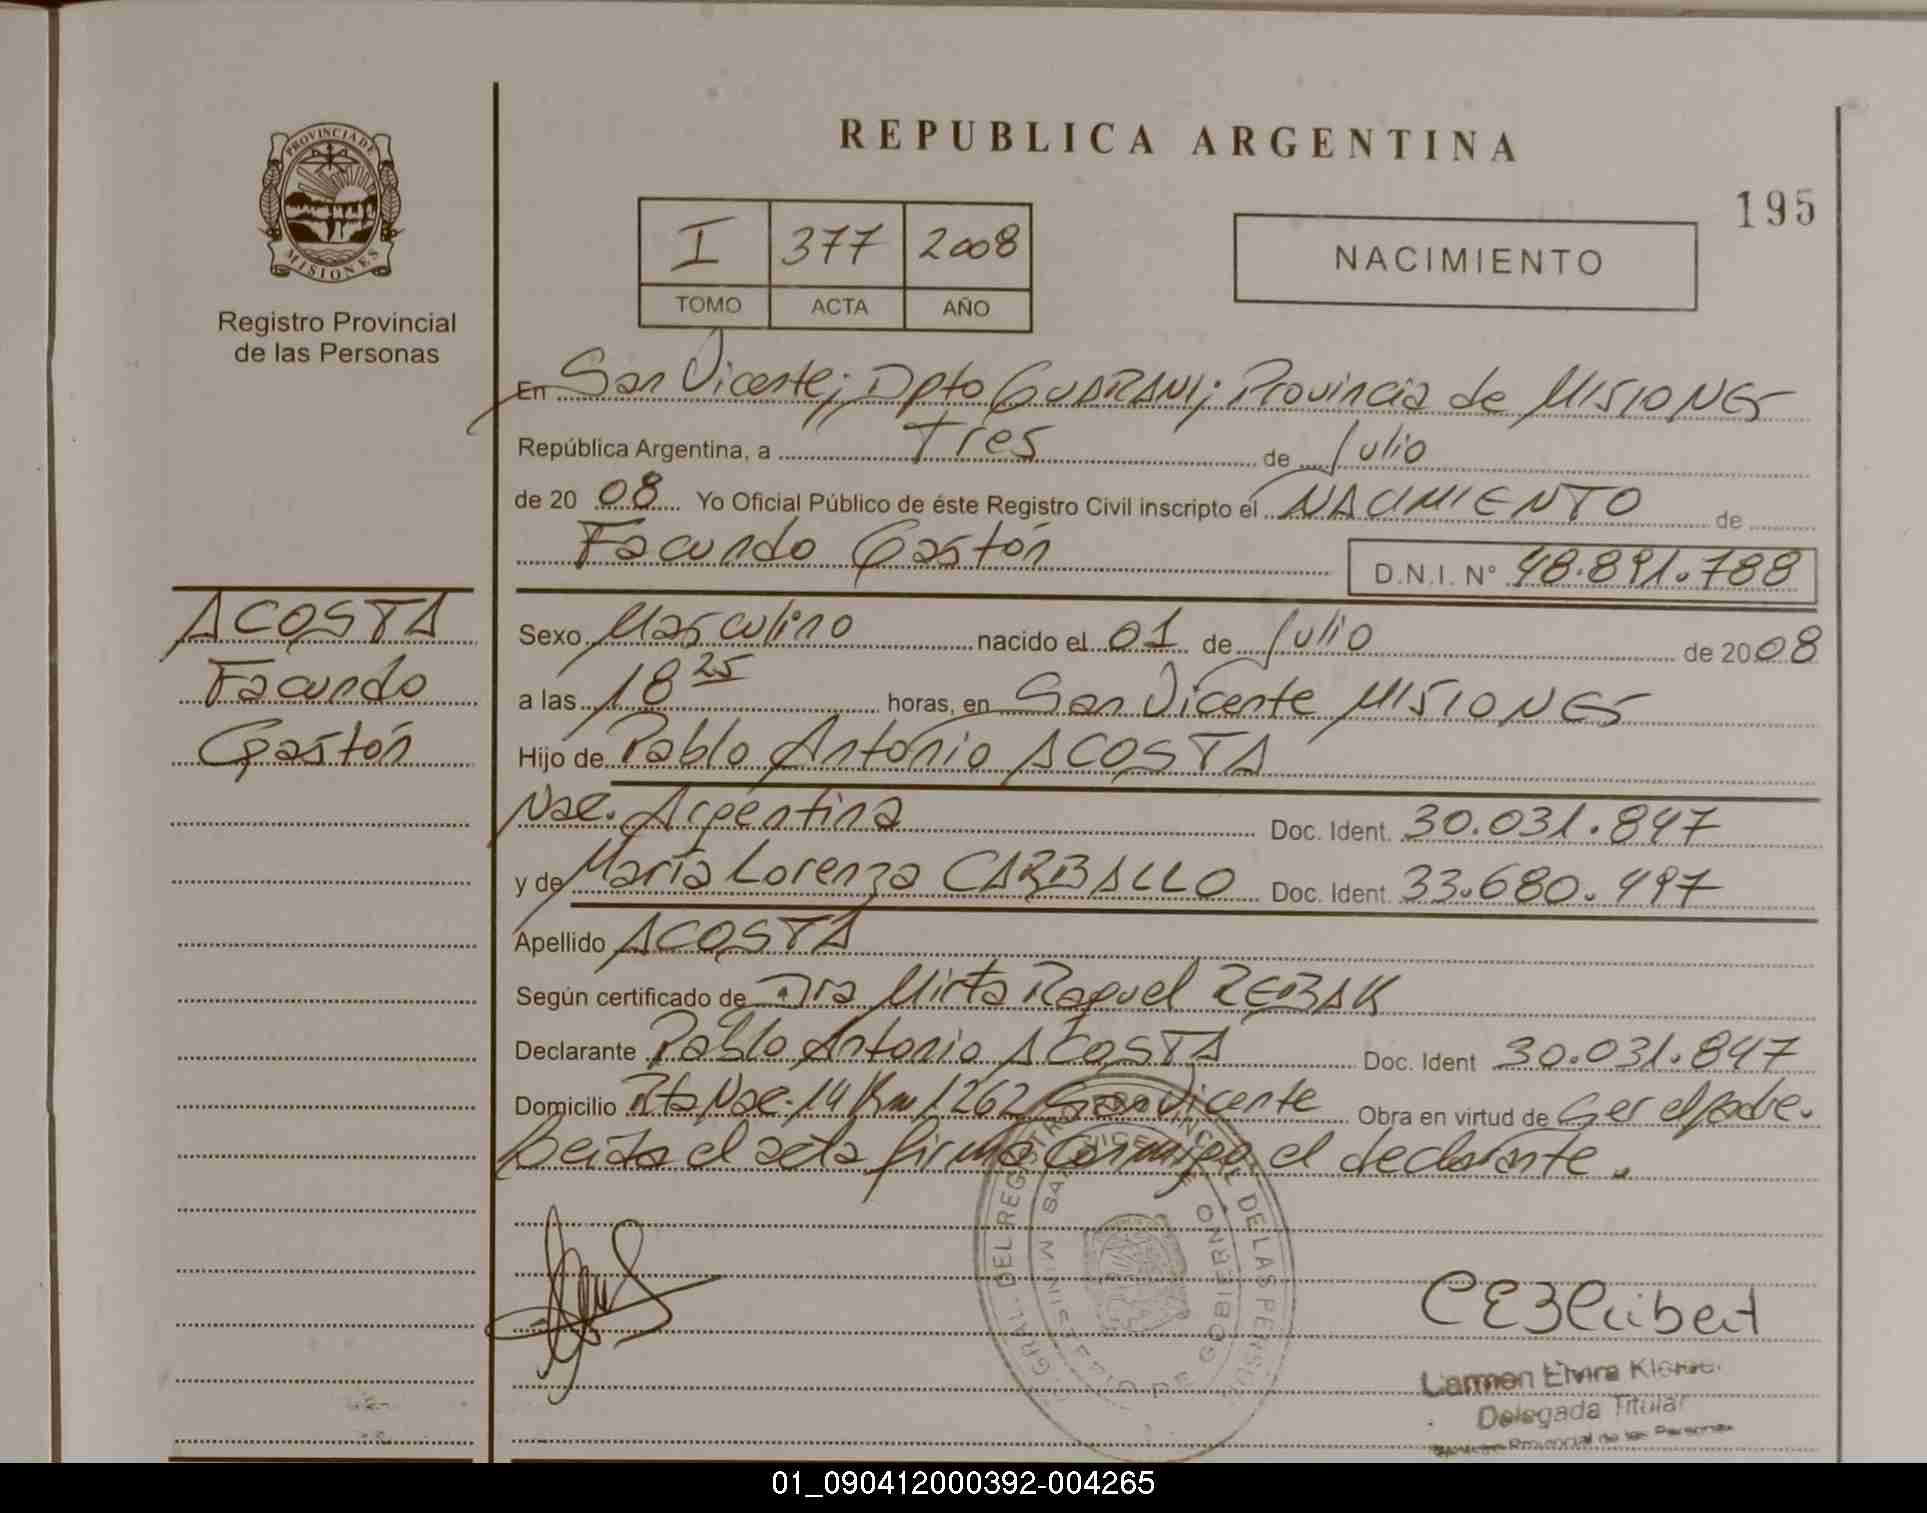 PROVINCIA DE
MISIONES
Registro Provincial
de las Personas
REPUBLICA ARGENTINA
195
I 377 2008
TOMO ACTA AÑO
NACIMIENTO
En San Vicente; Dpto GUARANI; Provincia de MISIONES
República Argentina, a Tres de Julio
de 20 08 Yo Oficial Público de éste Registro Civil inscripto el NACIMIENTO de
Facundo Gastón
D.N.I. N° 48.891.788
ACOSTA
Facundo
Gastón
Sexo Masculino nacido el 01 de Julio de 2008
a las 18 25 horas, en San Vicente MISIONES
Hijo de Pablo Antonio ACOSTA
Nac. Argentina Doc. Ident. 30.031.847
y de María Lorenza CARBALLO Doc. Ident. 33.680.497
Apellido ACOSTA
Según certificado de Dra Mirta Raquel REBAK
Declarante Pablo Antonio ACOSTA Doc. Ident 30.031.847
Domicilio Rta Nac. 14 Km 1262 San Vicente Obra en virtud de Ser el padre.
Leída el acta firma conmigo el declarante.
GRAL. DEL REGISTRO DE LAS PERSONAS
MINISTERIO DE GOBIERNO
Carmen Elvira
Delegada Titular
Provincial de las Personas
01_090412000392-004265